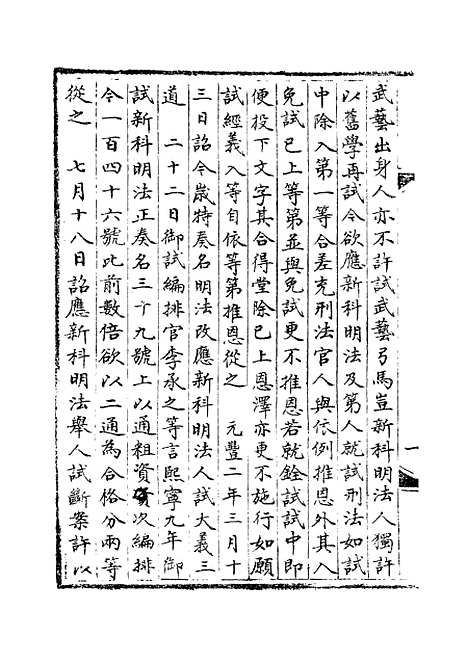 武藝出身人亦不許試武藝弓馬豈新科明法人獨許
以舊學再試今欲應新科明法及第人就試刑法如試
中除入第一等合差充刑法官人與依例推恩外其入
免試已上等第並與免試更不推恩若就銓試試中即
便投下文字其合得堂除已上恩澤亦更不施行如願
試經義入等自依等第推恩從之　元豐二年三月十
三日詔今歲特奏名明法改應新科明法人試大義三
道　二十二日御試編排官李承之等言熙寧九年御
試新科明法正奏名三十九號上以通粗資次編排
今一百四十六號比前數倍欲以二通為合格分兩等
從之　七月十八日詔應新科明法舉人試斷案許以